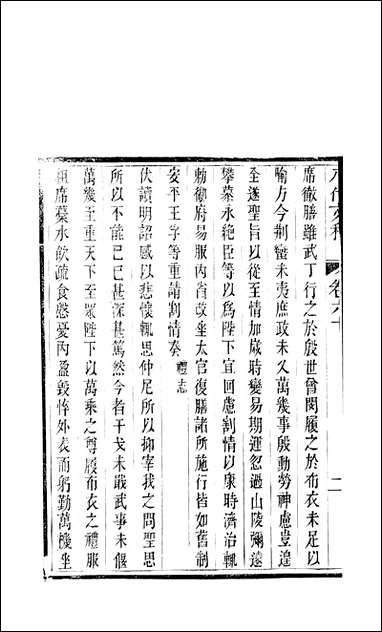 八代文粹
卷六十
二
席徹膳雖武丁行之於殷世曾閔履之於布衣未足以
喻方今荆蠻未夷庶政未乂萬幾事殷動勞神慮豈遑
全遂聖旨以從至情加歲時變易期運忽過山陵彌遠
攀慕永絶臣等以爲陛下宜回慮割情以康時濟治輒
勅御府易服內省改坐太官復膳諸所施行皆如舊制
安平王孚等重請割情奏 禮志
伏讀明詔感以悲懷輒思仲尼所以抑宰我之問聖思
所以不能已已甚深甚篤然今者干戈未戢武事未偃
萬幾至重天下至眾陛下以萬乘之尊履布衣之禮服
粗席藁水飲疏食慇憂內盈毀悴外表而躬勤萬機坐